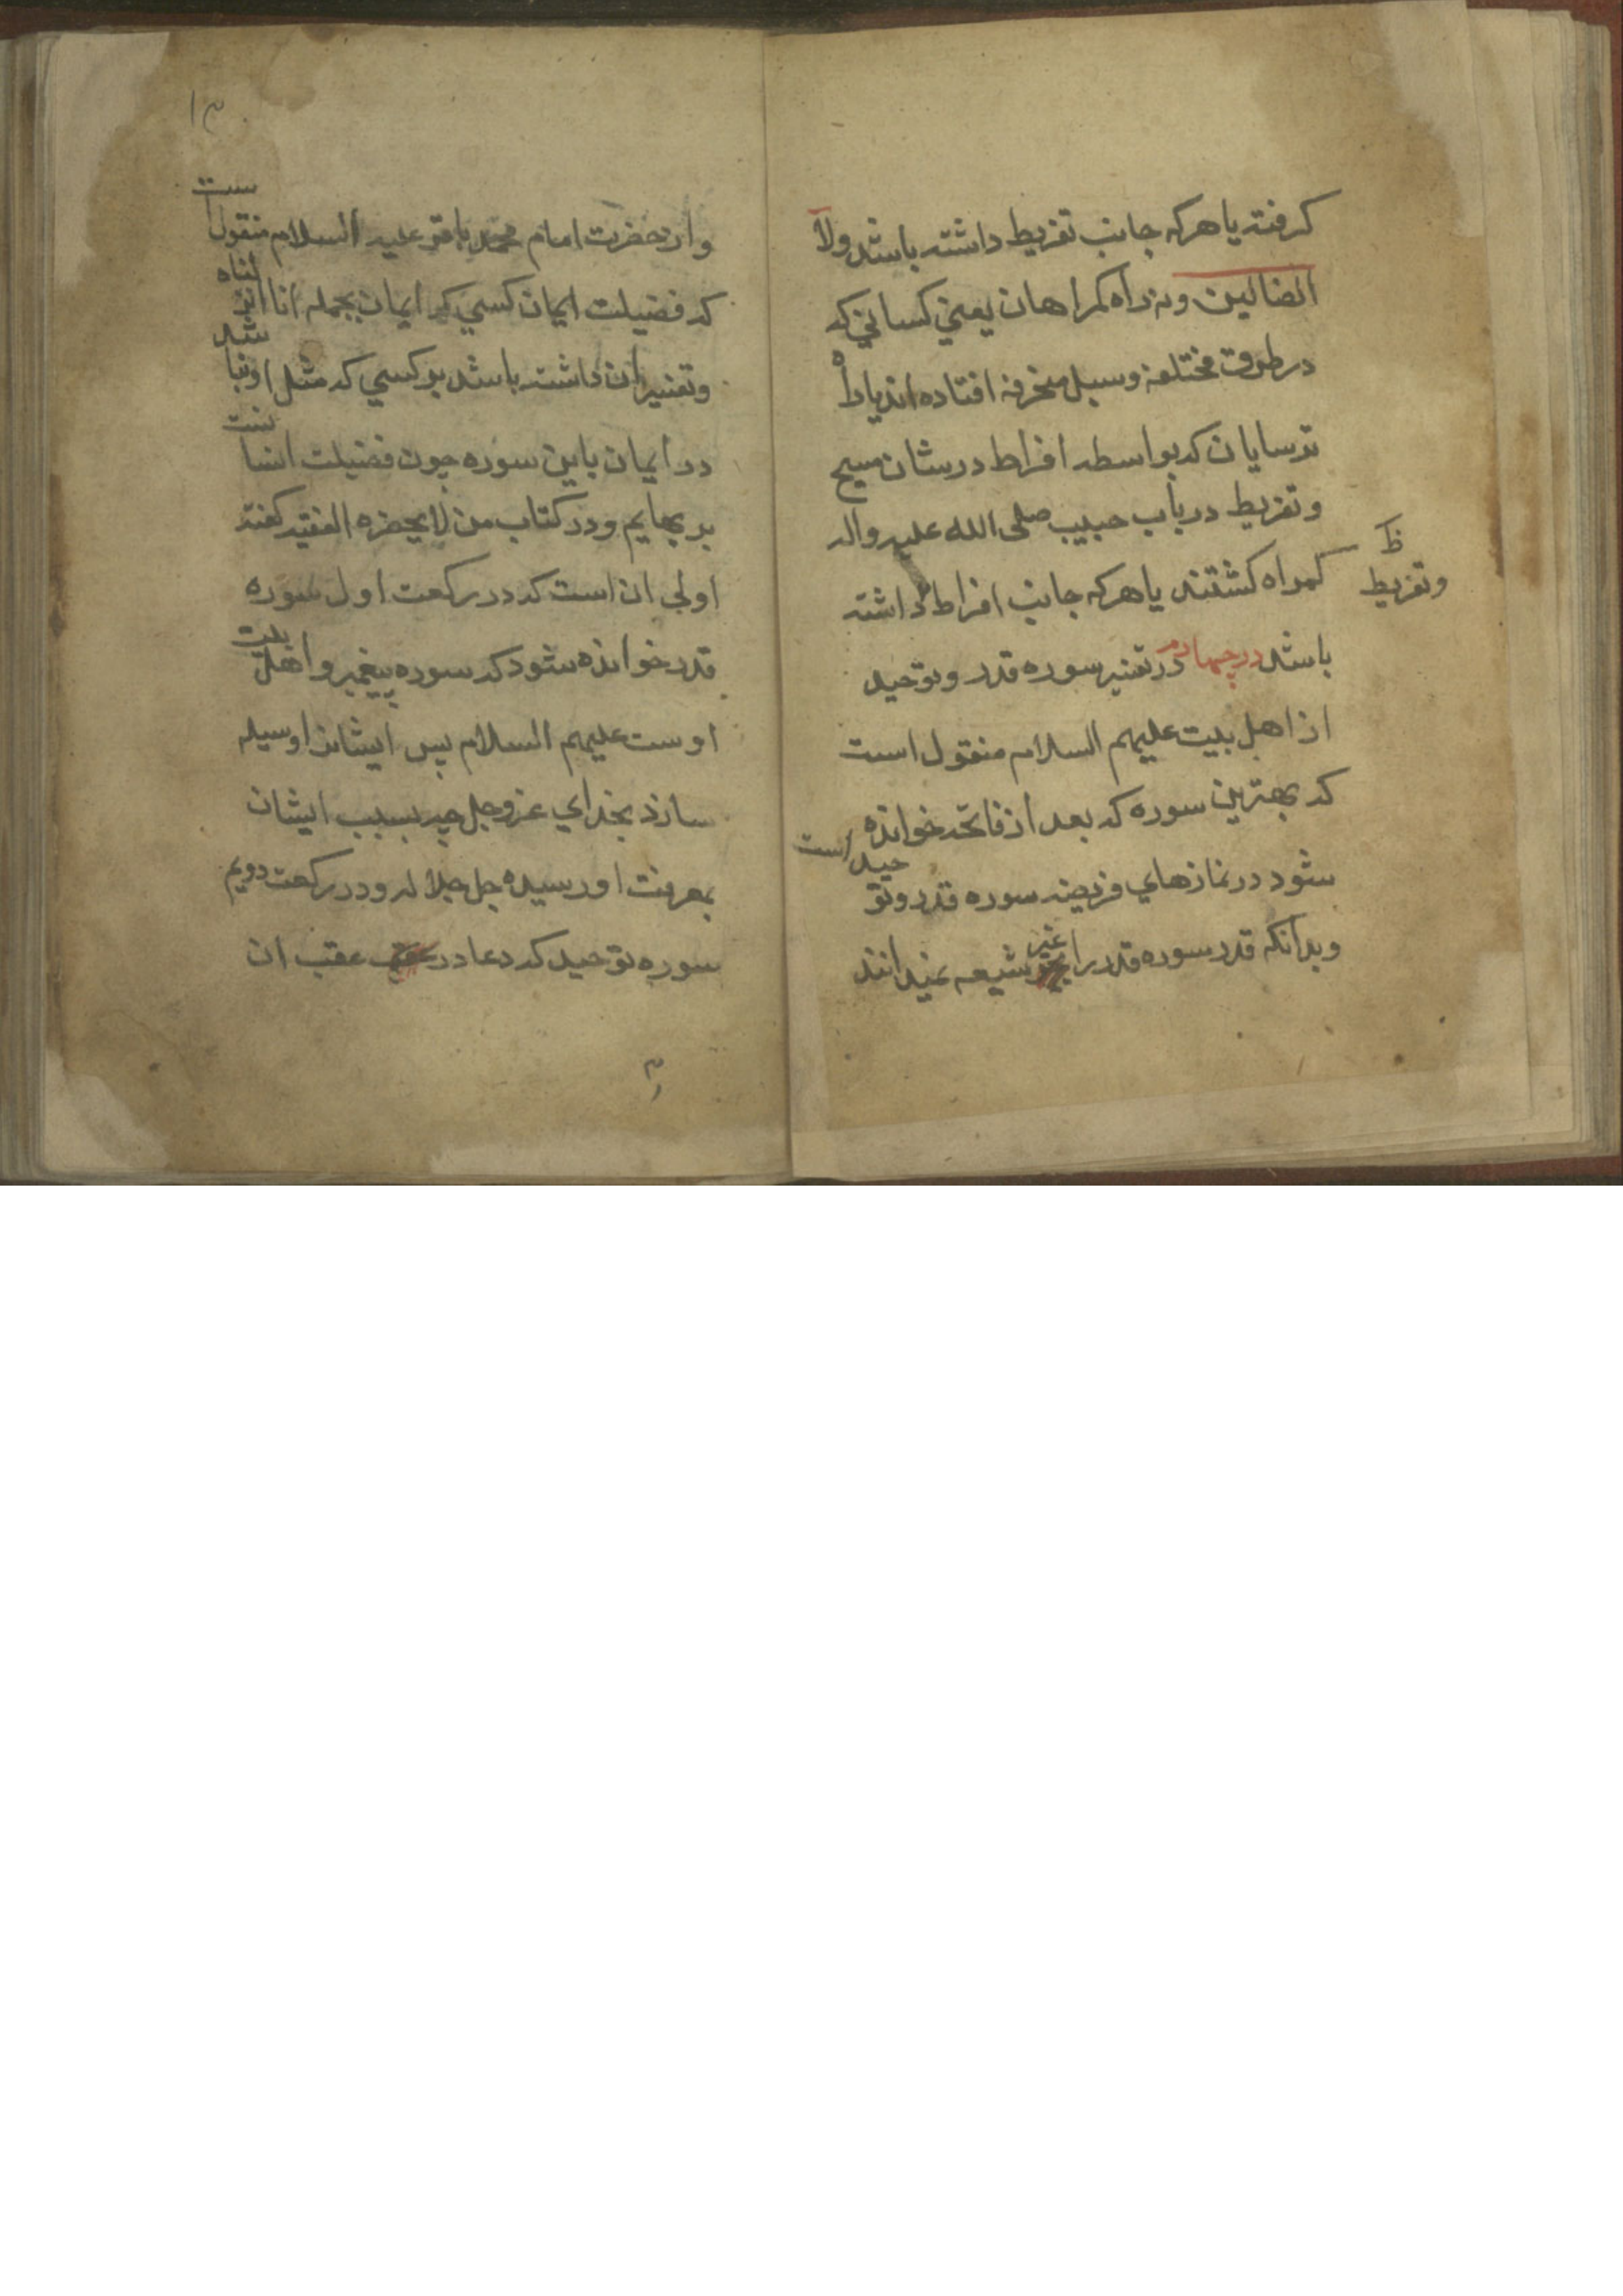 كرفته يا هركه جانب تفريط داشته باشد ولا
الضالين ونه راه كمراهان يعني كساني كه
در طرق مختلفه وسبل منحرفه افتاده اند يا راه
ترسايان كه بواسطه افراط در شان مسيح
وتفريط در باب حبيب صلى الله عليه واله
كمراه كشتند يا هركه جانب افراط داشته
ظ
وتفريط
باشد در چهارم در تفسير سوره قدر وتوحيد
از اهل بيت عليهم السلام منقول است
كه بهترين سوره كه بعد از فاتحه خوانده
شود در نمازهاي فريضه سوره قدر وتوحيد است
وبدانكه قدر سوره قدر را غير شيعه نميدانند
١٣
واز حضرت امام محمد باقر عليه السلام منقولست
كه فضيلت ايمان كسي كه ايمان بجمله انا انزلناه
وتفسير ان داشته باشد بر كسي كه مثل او نباشد
در ايمان باين سوره چون فضيلت انسانست
بر بهايم ودر كتاب من لا يحضره الفقيه كفته
اولى ان است كه در ركعت اول سوره
قدر خوانده شود كه سوره پيغمبر واهل بيت
اوست عليهم السلام پس ايشانرا وسيله
سازد بخداي عزوجل چه بسبب ايشان
بمعرفت او رسيده جل جلاله ودر ركعت دويم
سوره توحيد كه دعا در عقب ان